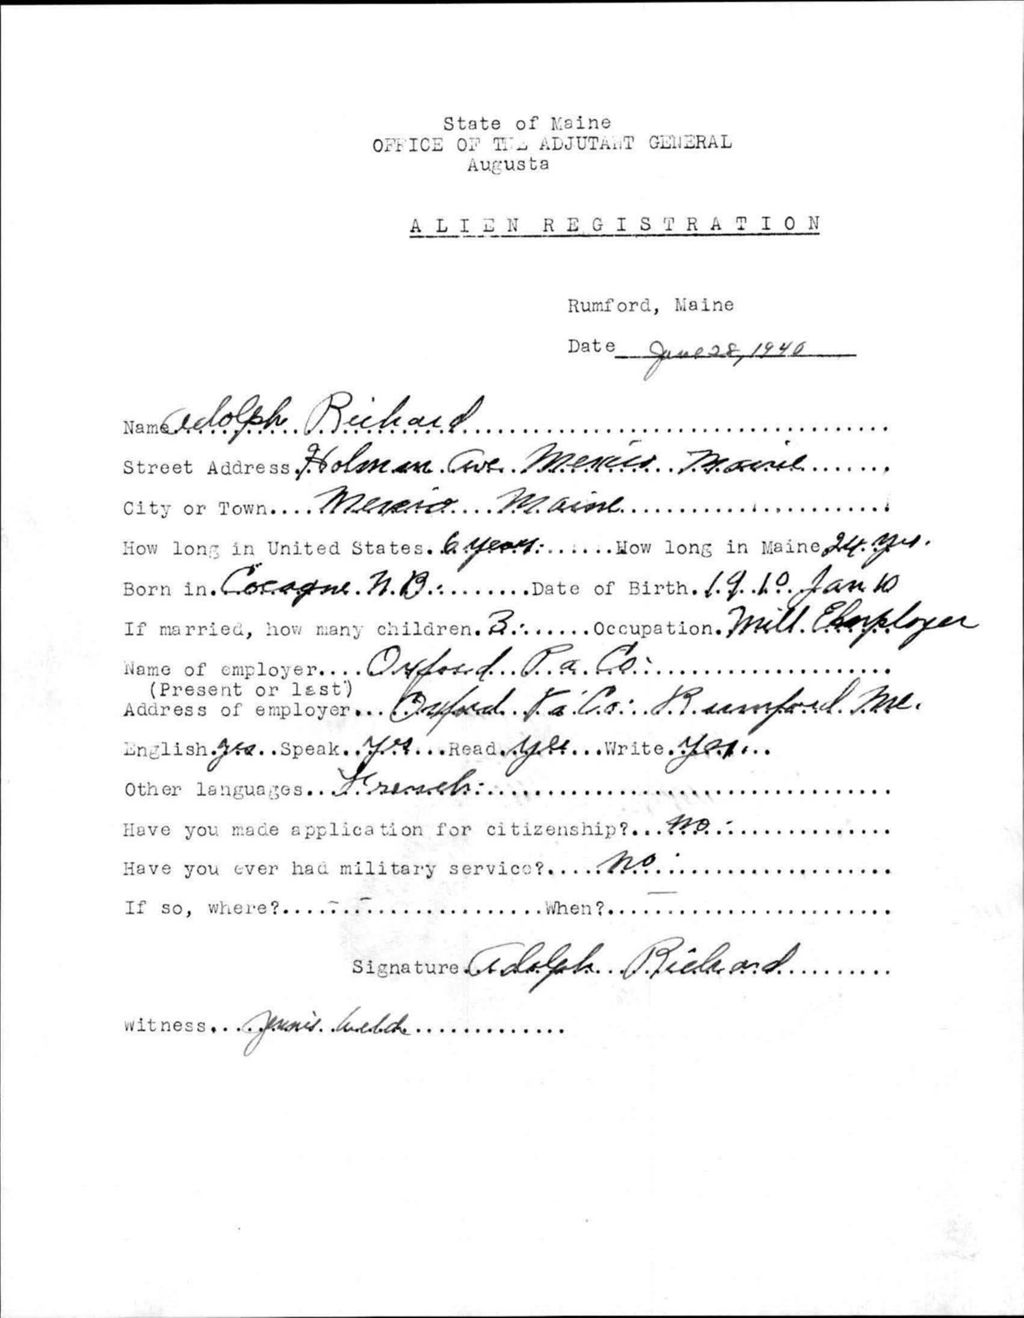 State of Maine
OFFICE OF THE ADJUTANT GENERAL
Augusta
ALIEN REGISTRATION
Rumford, Maine
Date June 28, 1940
Name Adolph Richard
Street Address Holman Ave. Mexico Maine
City or Town Mexico Maine
How long in United States 6 years How long in Maine 24 yrs.
Born in Cocagne N.B. Date of Birth 1910 Jan 10
If married, how many children 3 Occupation Mill Employer
Name of employer Oxford Pa. Co.
(Present or last)
Address of employer Oxford Pa Co. Rumford Me.
English yes Speak yes Read yes Write yes
Other languages French
Have you made application for citizenship? no
Have you ever had military service? no
If so, where? - - When? -
Signature Adolph Richard
Witness Welch